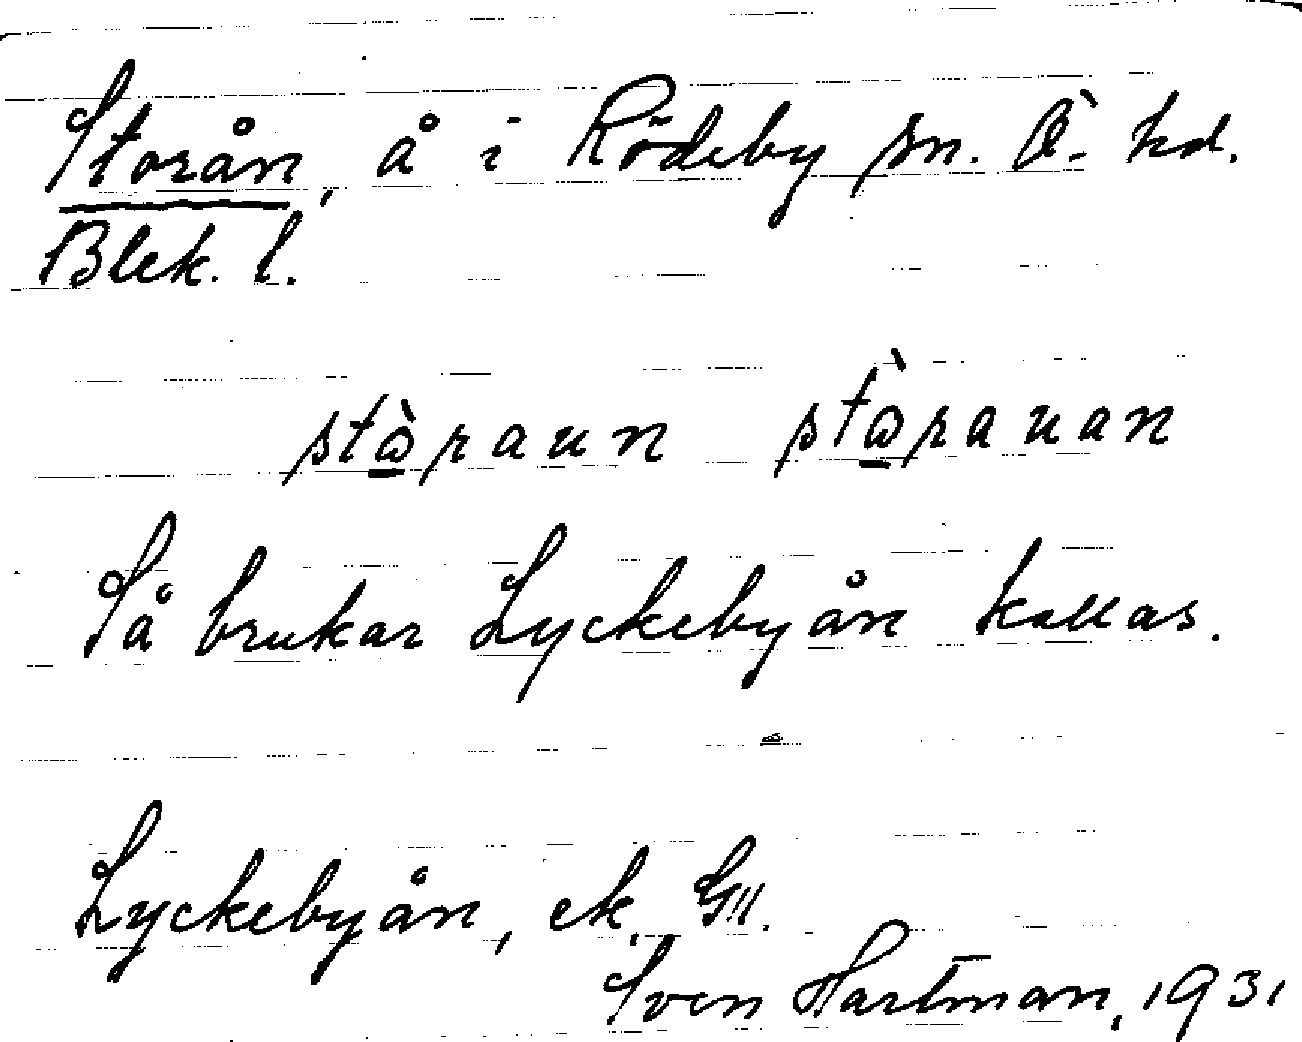 Storån, å i Rödeby sn. Ö. hd.
Blek. l.
stò̠raun stò̠rauan
Så brukar Lyckebyån kallas.
Lyckebyån, ek.
Sven Hartman, 1931